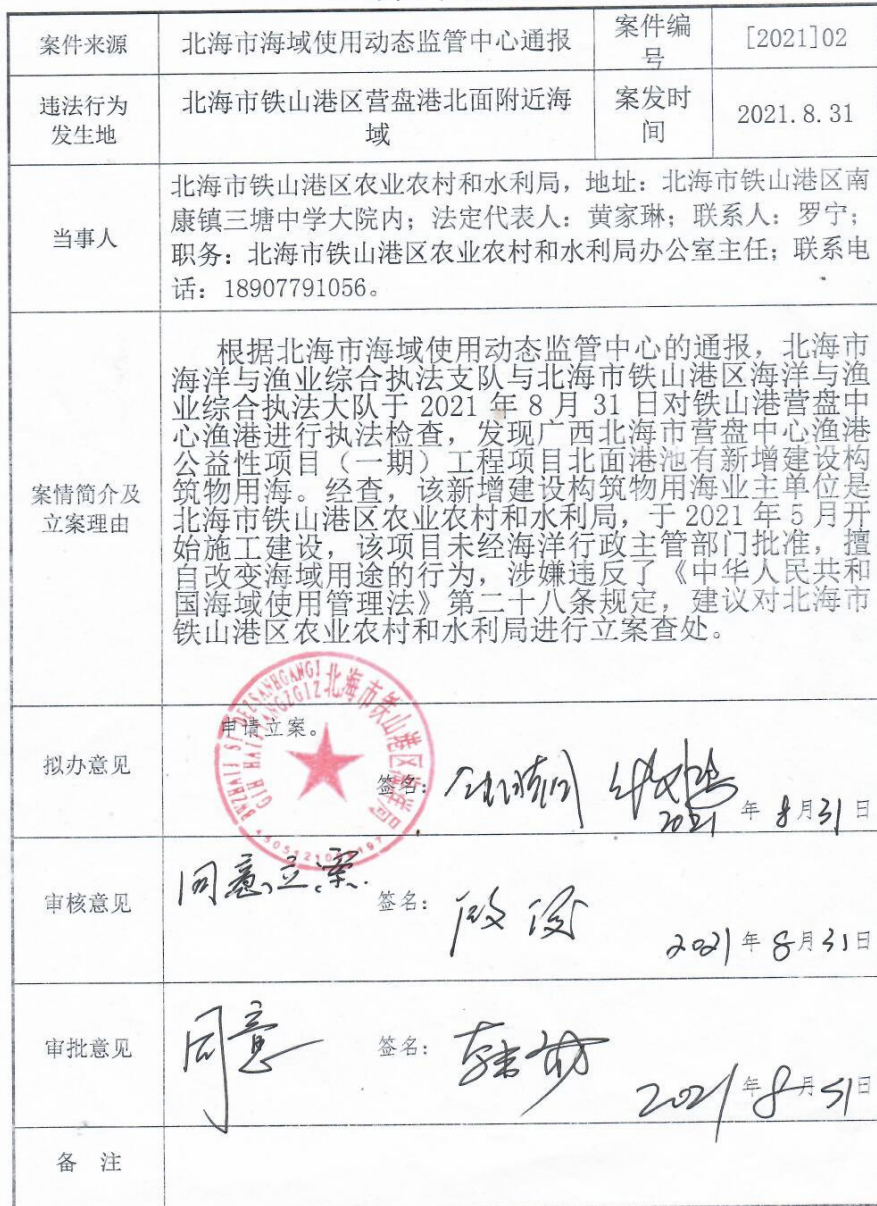 案件来源
北海市海域使用动态监管中心通报
案件编
号
[2021]02
违法行为
发生地
北海市铁山港区营盘港北面附近海
域
案发时
间
2021.8.31
当事人
北海市铁山港区农业农村和水利局，地址：北海市铁山港区南
康镇三塘中学大院内；法定代表人：黄家琳；联系人：罗宁；
职务：北海市铁山港区农业农村和水利局办公室主任；联系电
话：18907791056。
案情简介及
立案理由
根据北海市海域使用动态监管中心的通报，北海市
海洋与渔业综合执法支队与北海市铁山港区海洋与渔
业综合执法大队于 2021 年 8 月 31 日对铁山港营盘中
心渔港进行执法检查，发现广西北海市营盘中心渔港
公益性项目（一期）工程项目北面港池有新增建设构
筑物用海。经查，该新增建设构筑物用海业主单位是
北海市铁山港区农业农村和水利局，于 2021 年 5 月开
始施工建设，该项目未经海洋行政主管部门批准，擅
自改变海域用途的行为，涉嫌违反了《中华人民共和
国海域使用管理法》第二十八条规定，建议对北海市
铁山港区农业农村和水利局进行立案查处。
拟办意见
北海市铁山港区海洋局
申请立案。
签名：
2021 年 8 月 31 日
审核意见
同意立案.
签名：
2021 年 8 月 31 日
审批意见
同意
签名：
2021 年 8 月 31 日
备 注